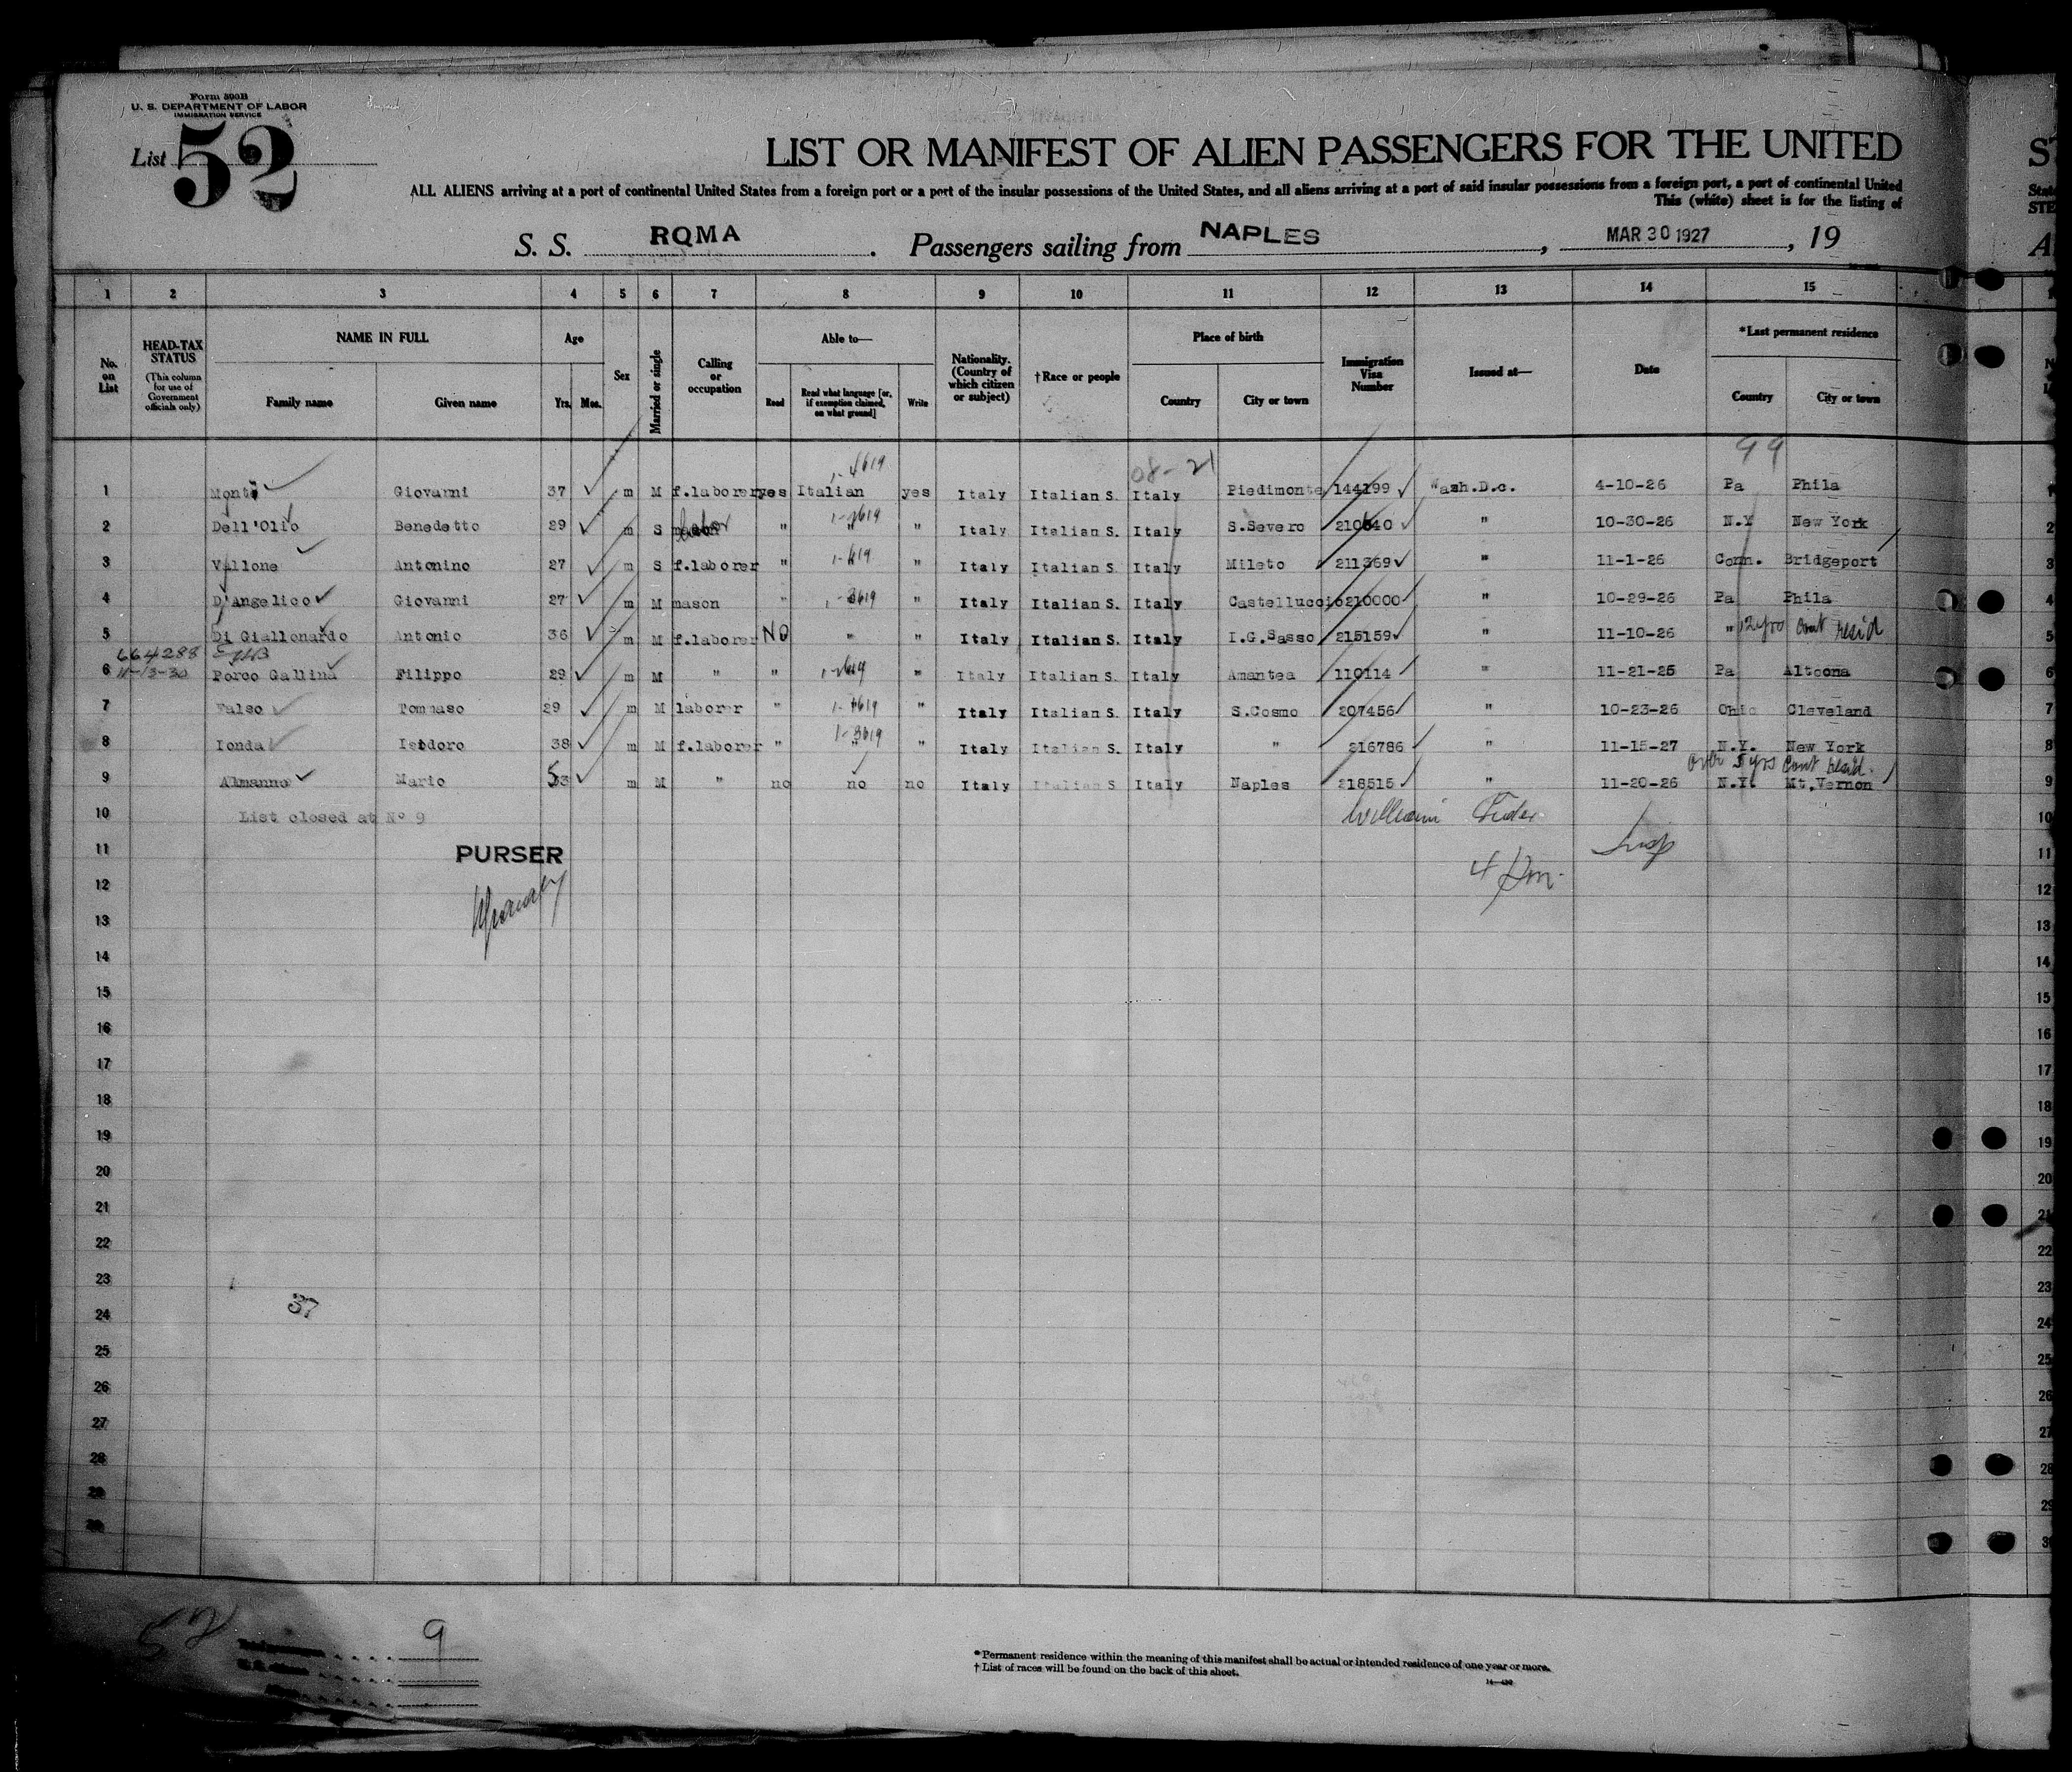 Form 500B
U. S. DEPARTMENT OF LABOR
IMMIGRATION SERVICE
List 52
LIST OR MANIFEST OF ALIEN PASSENGERS FOR THE UNITED
ALL ALIENS arriving at a port of continental United States from a foreign port or a port of the insular possessions of the United States, and all aliens arriving at a port of said insular possessions from a foreign port, a port of continental United
This (white) sheet is for the listing of
S. S. ROMA. Passengers sailing from NAPLES, MAR 30 1927, 19
1 2 3 4 5 6 7 8 9 10 11 12 13 14 15
No. on List
HEAD-TAX STATUS (This column for use of Government officials only)
NAME IN FULL Family name Given name
Age Yrs. Mos.
Sex
Married or single
Calling or occupation
Able to— Read Read what language [or, if exemption claimed, on what ground] Write
Nationality. (Country of which citizen or subject)
†Race or people
Place of birth Country City or town
Immigration Visa Number
Issued at—
Date
*Last permanent residence Country City or town
08-21 99
1 Giovanni 37 m M f.laborer yes Italian yes Italy Italian S. Italy Piedimonte 144199 Wash.D.c. 4-10-26 Pa Phila
2 Dell'Olio Benedetto 29 m S " " Italy Italian S. Italy S.Severo 10-30-26 N.Y New York
3 Vallone Antonino 27 m S f.laborer " " Italy Italian S. Italy Mileto 211369 " 11-1-26 Conn. Bridgeport
4 D'Angelico Giovanni 27 m M mason " " Italy Italian S. Italy Castelluccio 210000 " 10-29-26 Pa Phila
5 Di Giallonardo Antonio 36 m M f.laborer NO " " Italy Italian S. Italy I.G.Sasso 215159 " 11-10-26 " 12yrs Cont resid
664288
6 11-13-30 Porco Gallina Filippo 29 m M " " " Italy Italian S. Italy Amantea 110114 " 11-21-25 Pa Altoona
7 Falso Tommaso 29 m M laborer " " Italy Italian S. Italy S.Cosmo 207456 " 10-23-26 Ohio Cleveland
8 Ionda Isidoro 38 m M f.laborer " " " Italy Italian S. Italy " 216786 " 11-15-27 N.Y. New York
over 5 yrs Cont resid.
9 Almanno Mario 53 m M " no no no Italy Italian S Italy Naples 218515 " 11-20-26 N.Y. Mt.Vernon
10 List closed at Nº 9 William
11 PURSER Insp
12
13
14
15
16
17
18
19
20
21
22
23
24 37
25
26
27
28
29
30
52 9
*Permanent residence within the meaning of this manifest shall be actual or intended residence of one year or more.
†List of races will be found on the back of this sheet.